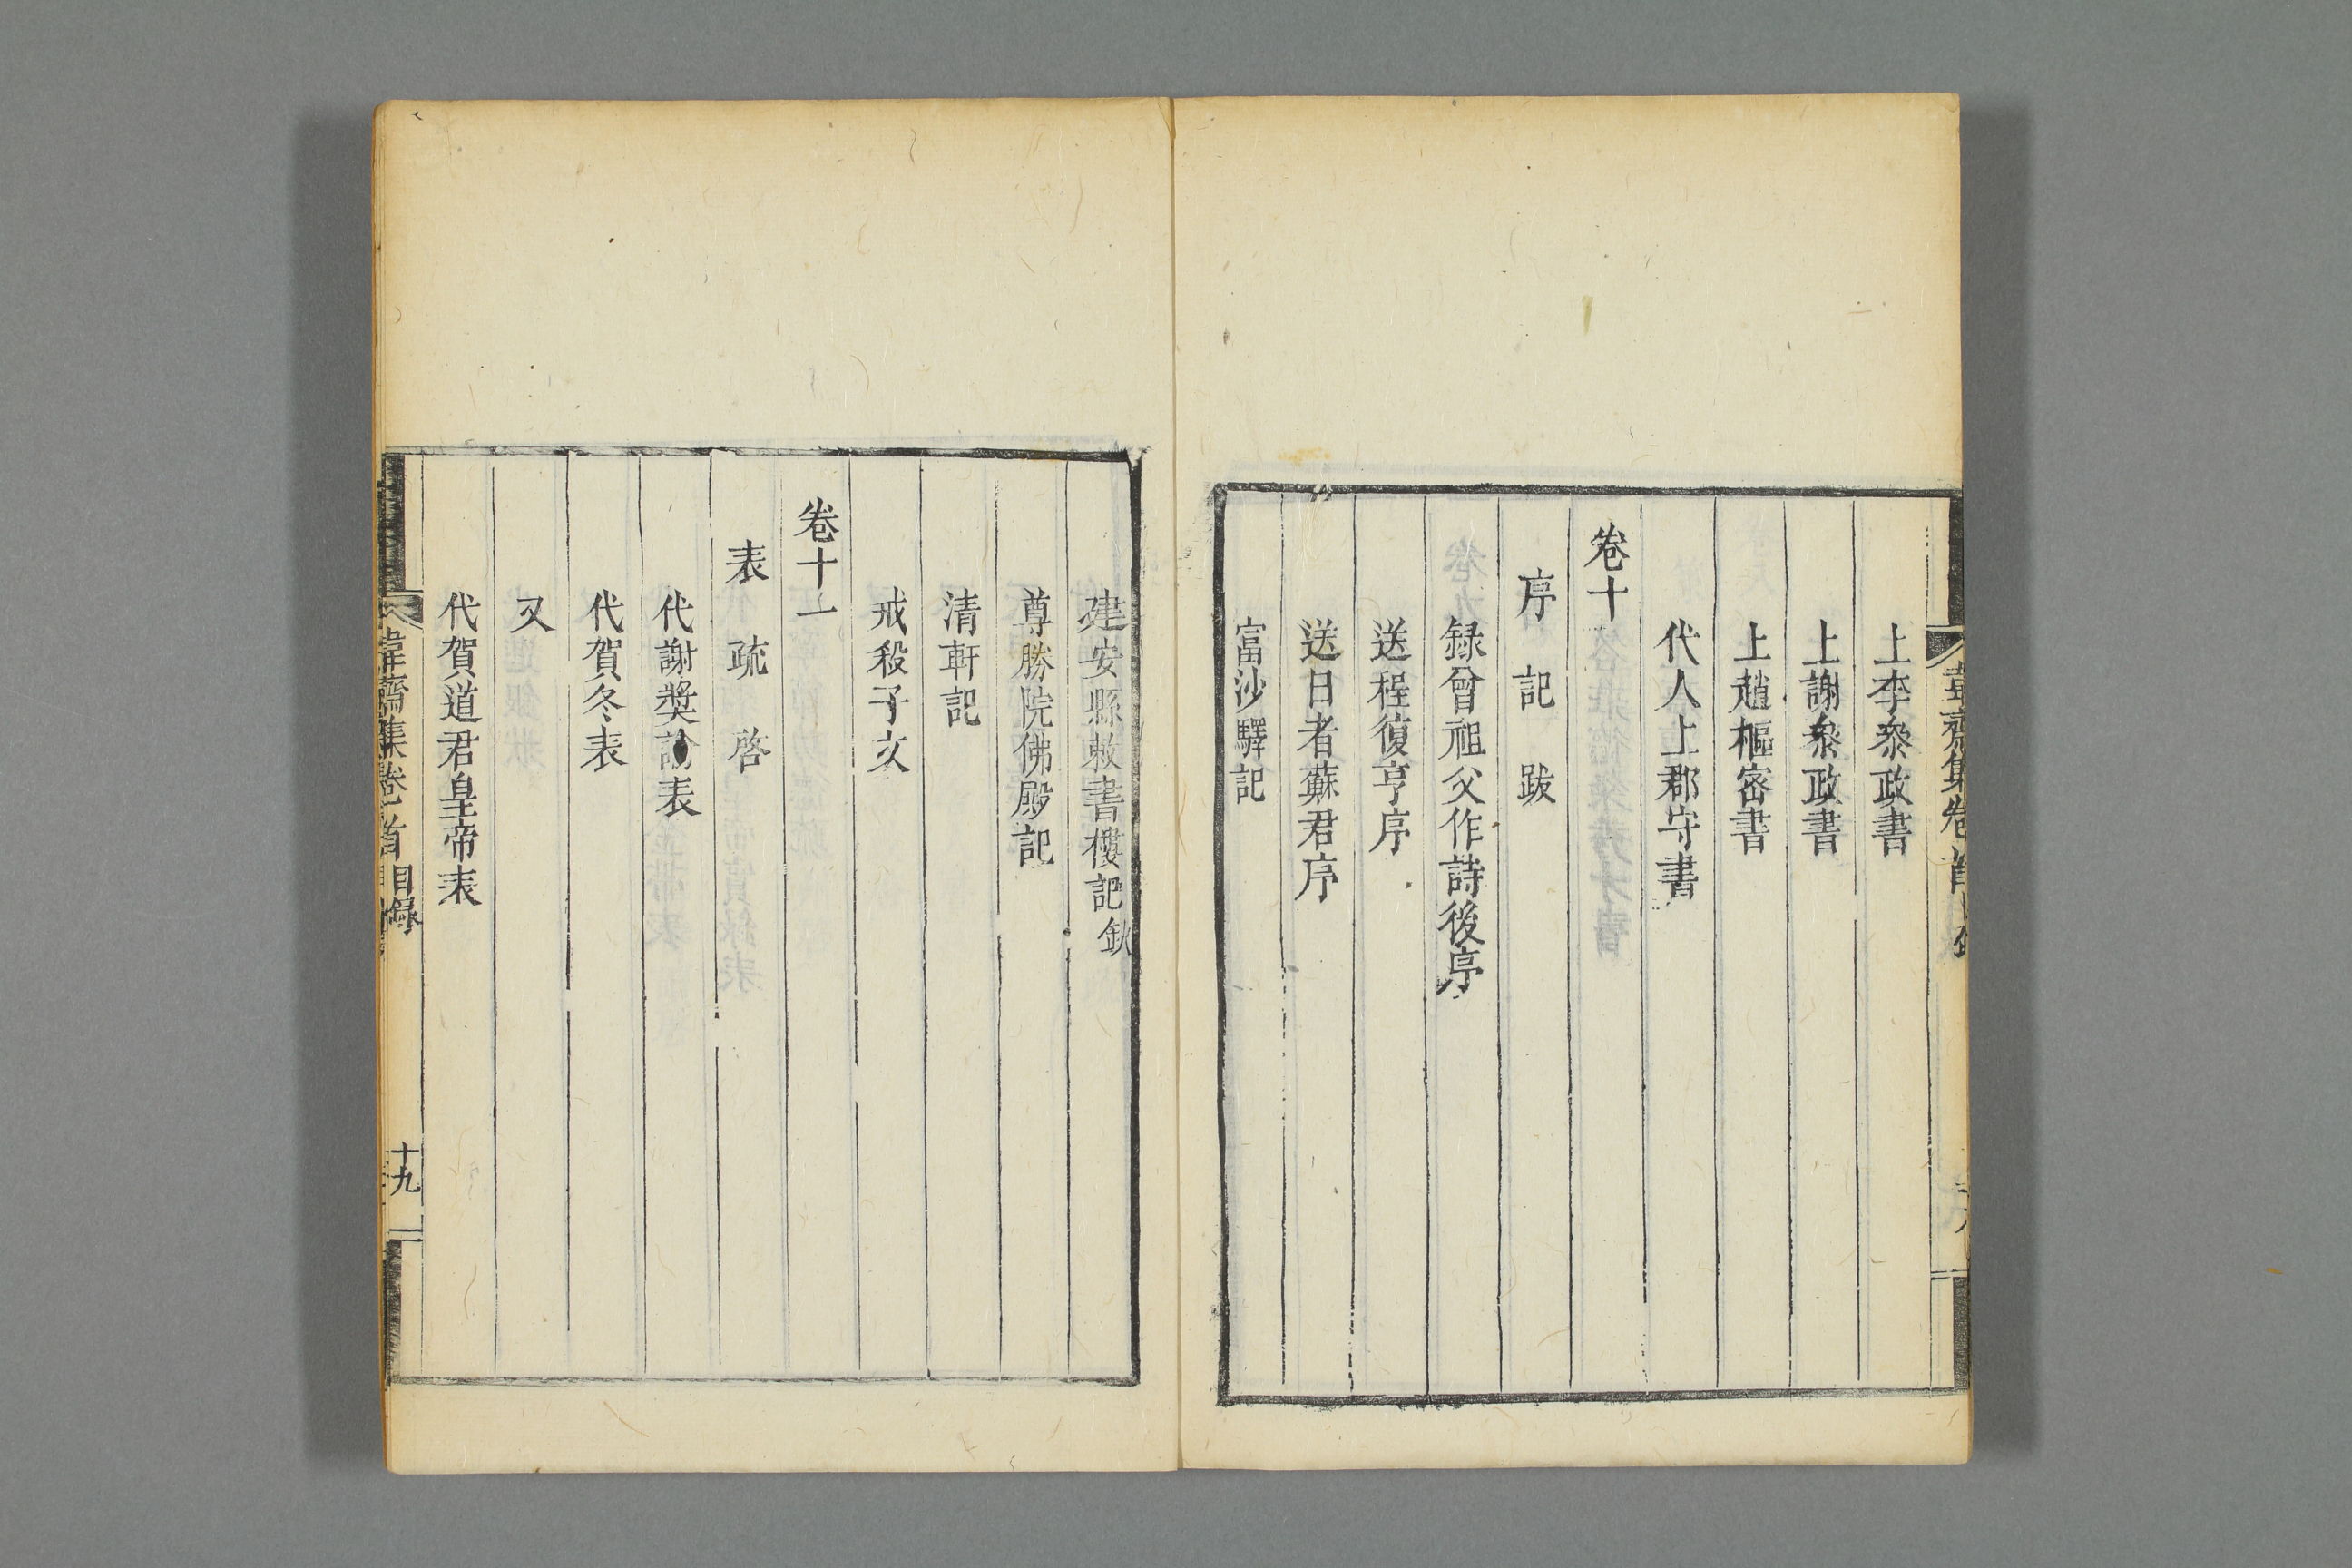 上李叅政書
上謝叅政書
上趙樞密書
代人上郡守書
卷十
序 記 跋
録曾祖父作詩後序
送程復亨序
送日者蘇君序
富沙驛記
建安縣敕書樓記欽
尊勝院佛殿記
清軒記
戒殺子文
卷十一
表 疏 啓
代謝獎諭表
代賀冬表
又
代賀道君皇帝表
韋齋集卷首 目録
十九